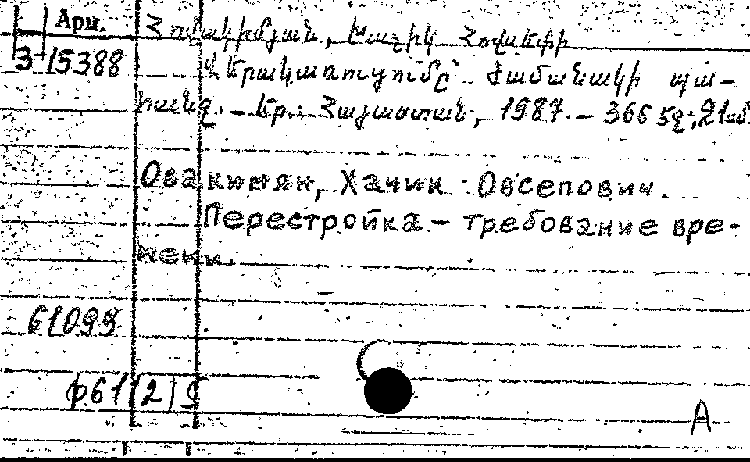 Арм.
Հովակիմյան, Խաչիկ Հովսեփի
3-15388
Վերակառուցումը՝ ժամանակի պա-
հանջ. – Եր.: Հայաստան, 1987. – 366 էջ; 21սմ
Овакимян, Хачик Овсепович.
Перестройка – требование вре-
мени.
61099
ф61(2)9
А